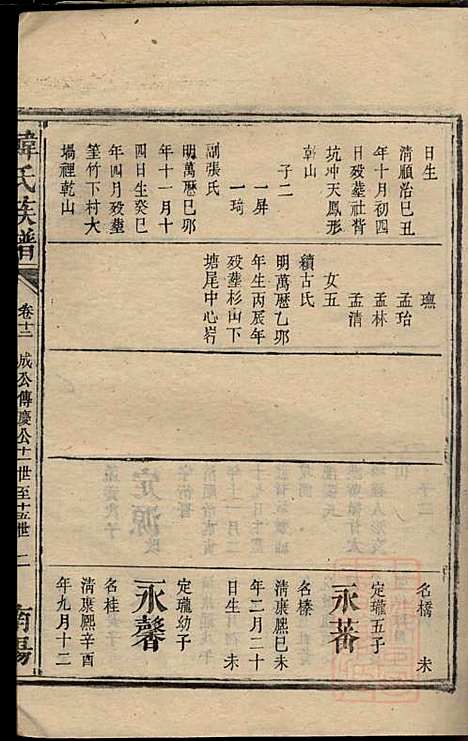 日生
清順治己丑
年十月初四
日歿葬社背
坑冲天鳳形
乾山
子二
一屏
一琦
副張氏
明萬曆己卯
年十一月十
四日生癸巳
年四月歿葬
筀竹下村大
塲裡乾山
孟珆
孟林
孟清
女五
續古氏
明萬曆乙卯
年生丙辰年
歿葬杉山下
塘尾中心岽
名橋 未
定瓏五子
永蕃
名榛 未
清康熙己巳
年二月二十
日生
定瓏幼子
永馨
名桂
清康熙辛酉
年九月十二
韓氏族譜
卷十二
成公傳慶公十一世至十五世
二
南陽